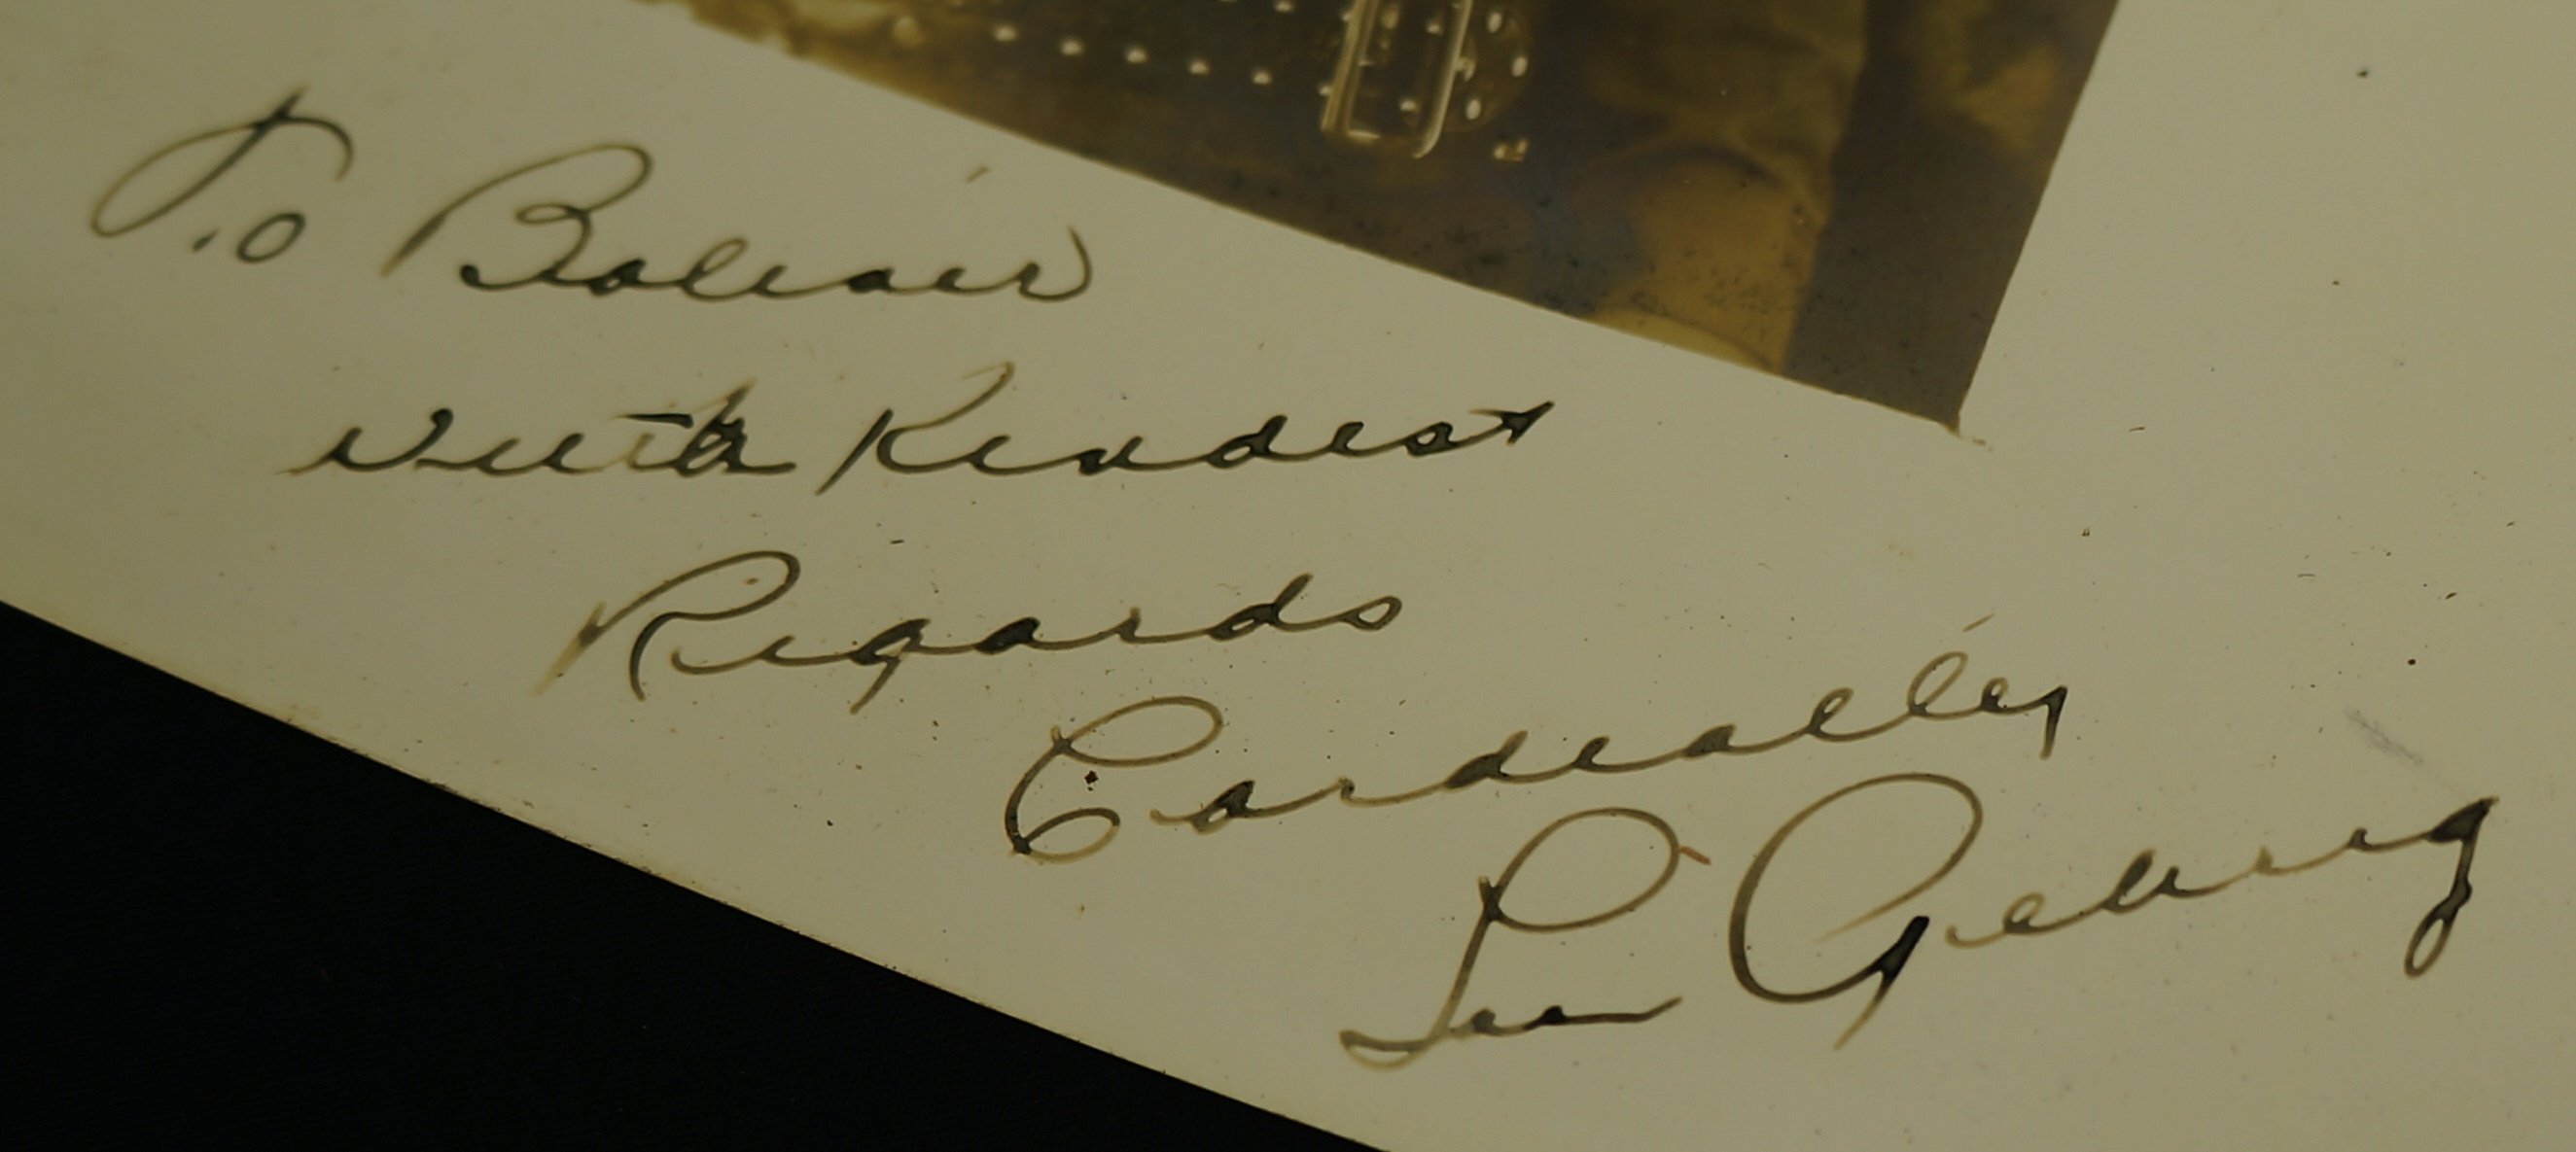 To Bolivair
With Kindest
Regards
Cordially
Lou Gehrig